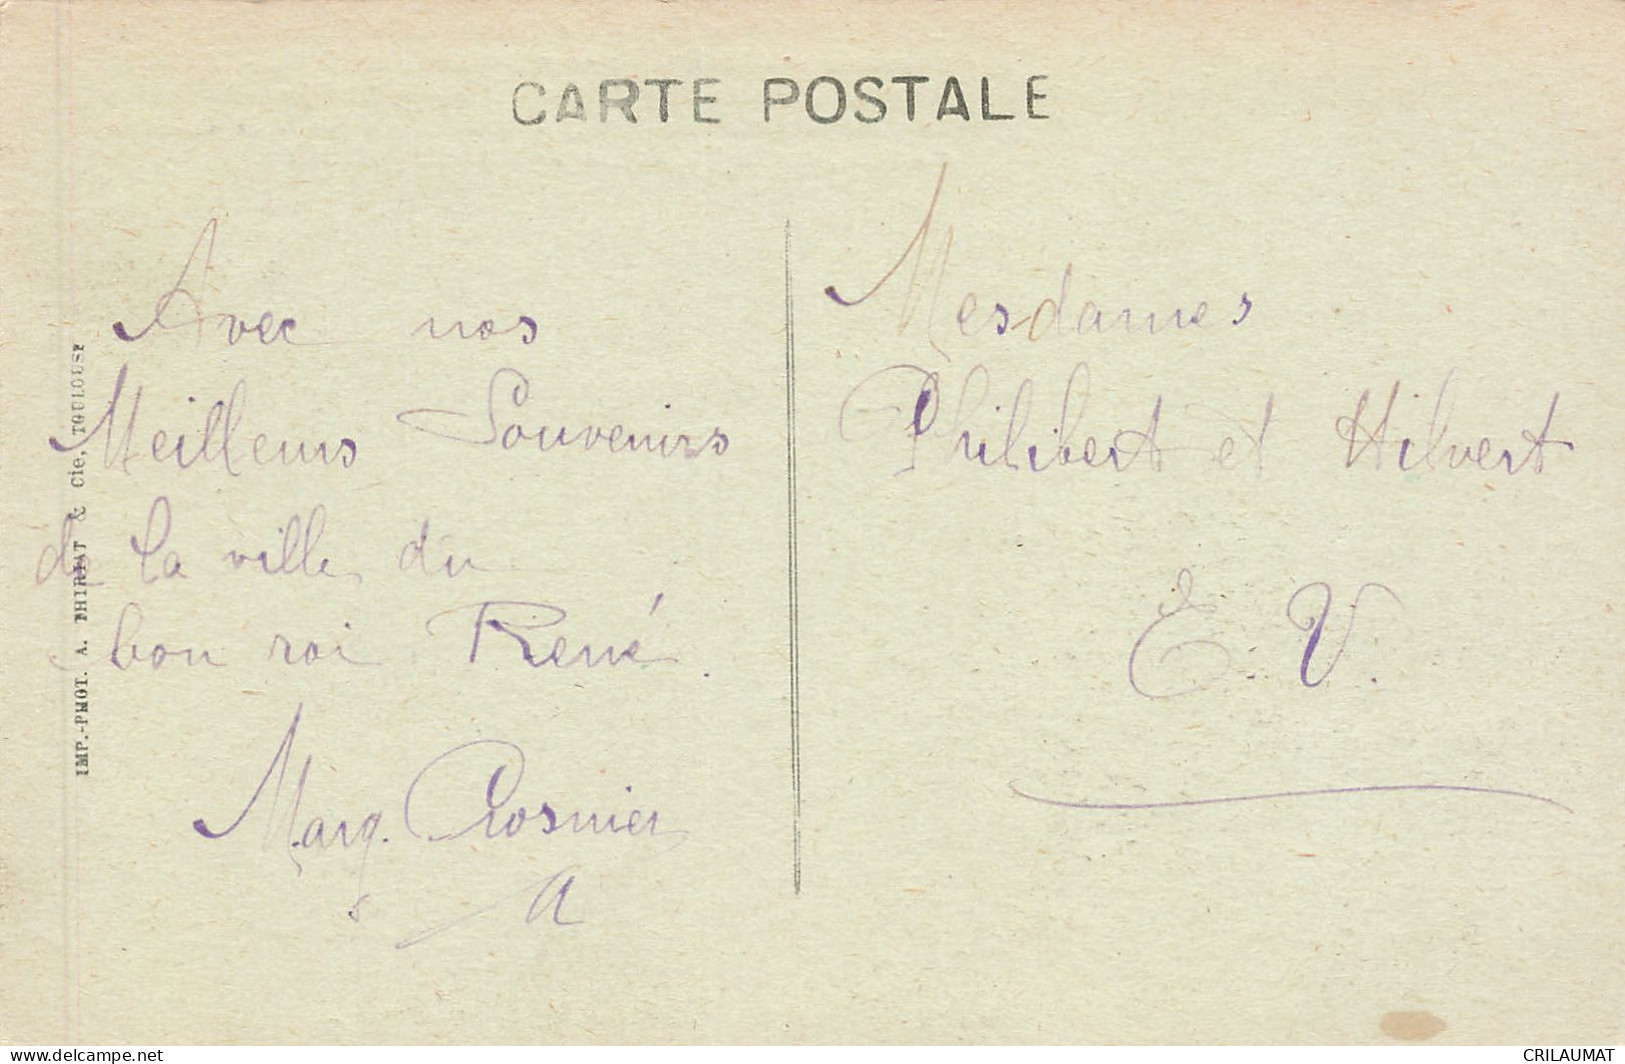 CARTE POSTALE
Avec nos
Meilleurs Souvenirs
de la ville du
bon roi René.
Marg. Prosnier
A
Mesdames
Philibert et Hilvert
E. V.
IMP.-PHOT. A. THIRIAT & Cie, TOULOUSE
https://www.delcampe.net
CRILAUMAT